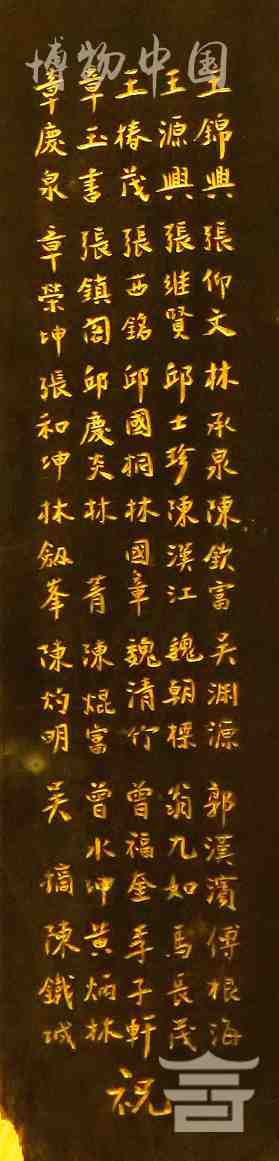 博物中国
王錦興 張仰文 林承泉 陳欽富 吴渊源 郭漢濱 傅根海
王源興 張继賢 邱士珍 陳漢江 魏朝樑 翁九如 馬長茂
王椿茂 張西銘 邱國桐 林國章 魏清竹 曾福奎 李子軒
章玉書 張鎮岡 邱慶炎 林菁 陳焜富 曾水坤 黄炳林
章慶泉 章榮坤 張和坤 林劔峯 陳灼明 吴摘 陳鐵城
祝